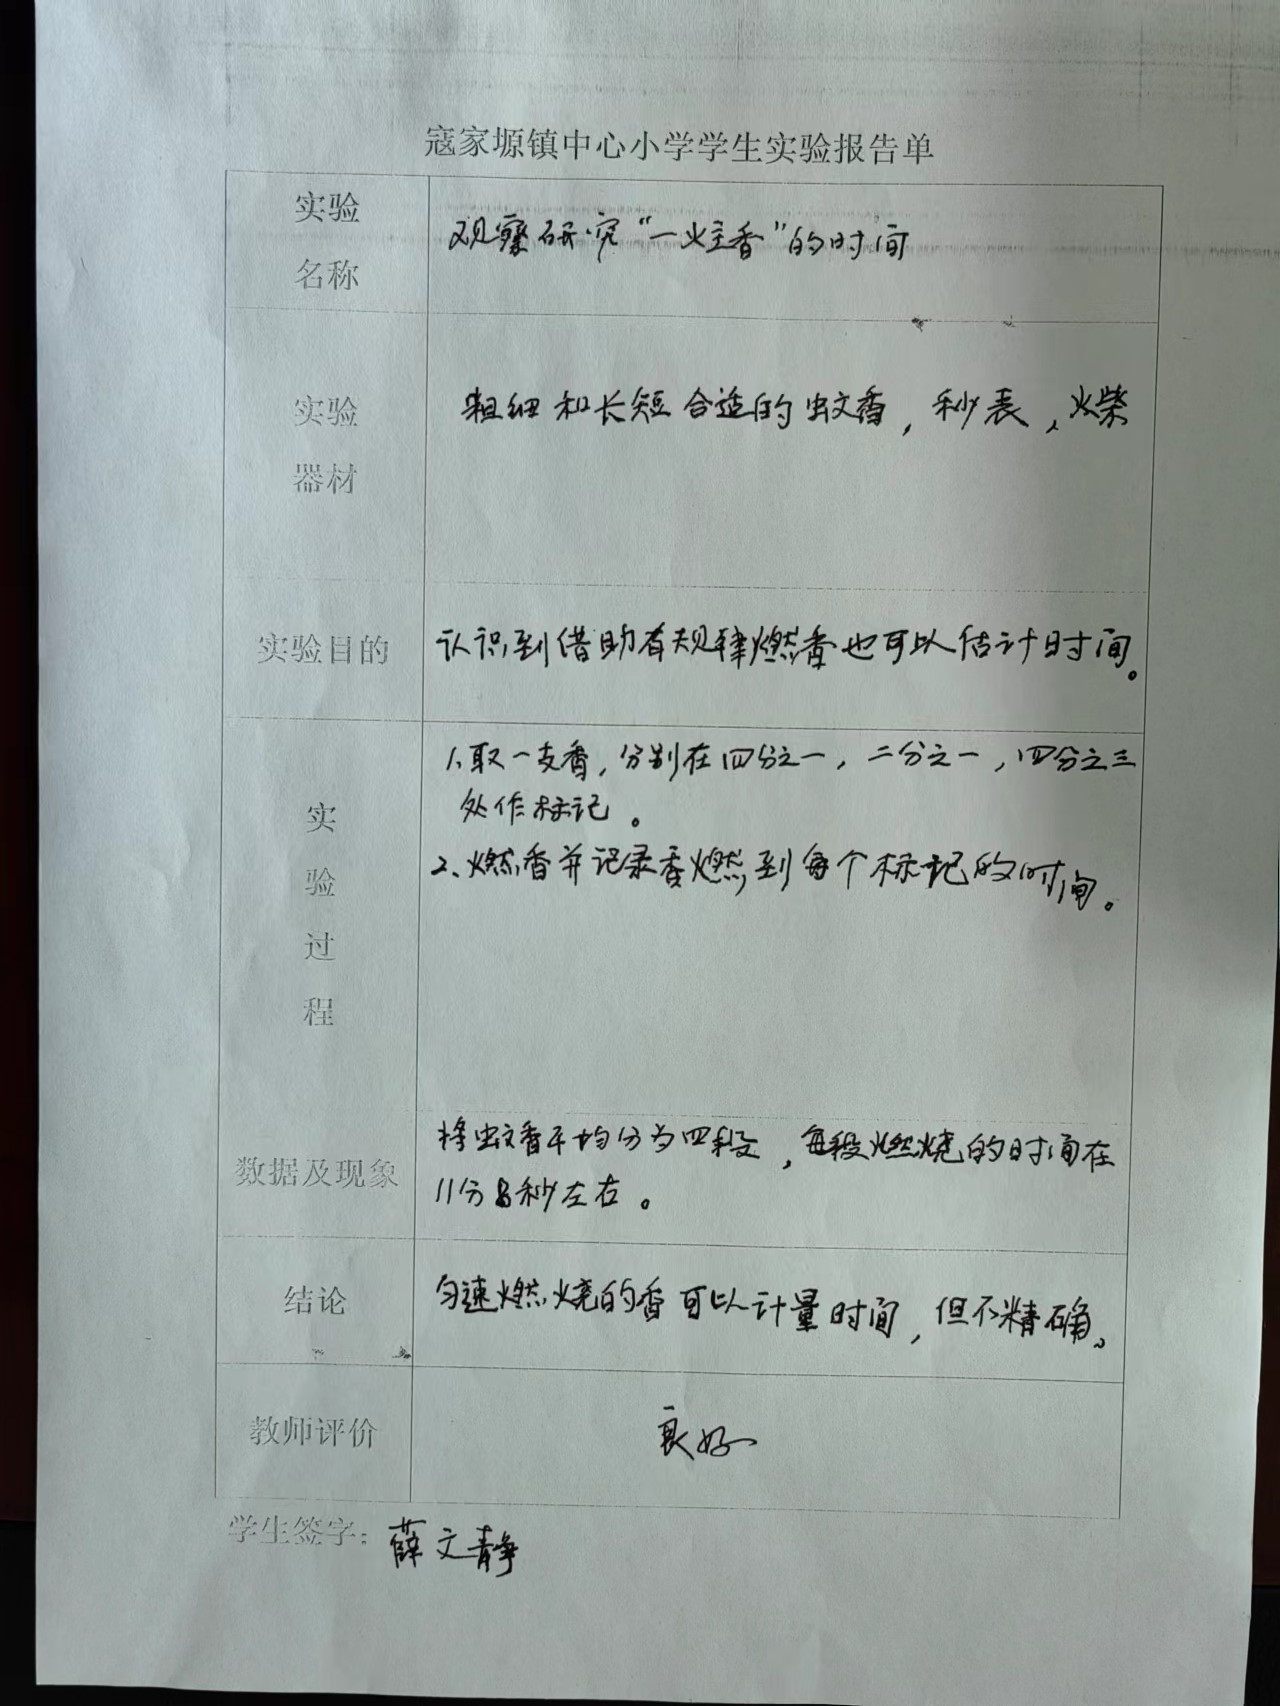 寇家塬镇中心小学学生实验报告单
实验
名称
观察研究“一炷香”的时间
实验
器材
粗细和长短合适的蚊香，秒表，火柴
实验目的
认识到借助有规律燃香也可以估计时间。
实
验
过
程
1、取一支香，分别在四分之一，二分之一，四分之三
处作标记。
2、燃香并记录香燃到每个标记的时间。
数据及现象
将蚊香平均分为四段，每段燃烧的时间在
11分8秒左右。
结论
匀速燃烧的香可以计量时间，但不精确。
教师评价
良好
学生签字：薛文静